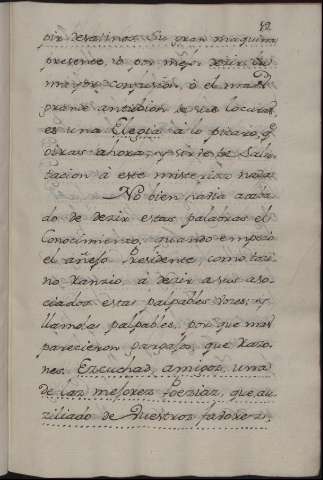 52
oir desatinos. Su gran maquina
presente, ò por mejor dezir, su
mayor confusion, ò el mas
grande antubion de sus locuras,
es una Elegia à lo picaro, q̃
oiras ahora, y sirve de Salu-
tacion à este misterioso nada.
No bien havia acaba-
do de dezir estas palabras el
Conocimiento, quando empezò
el añejo Presidente, como
rancio, à dezir a sus aso-
ciados estas palpables vozes; y
llamolas palpables, porque mas
parecieron gargajos, que razo-
nes. Escuchad, amigos, una
de las mejores Poesias, que, au-
xiliado de vuestros favores,